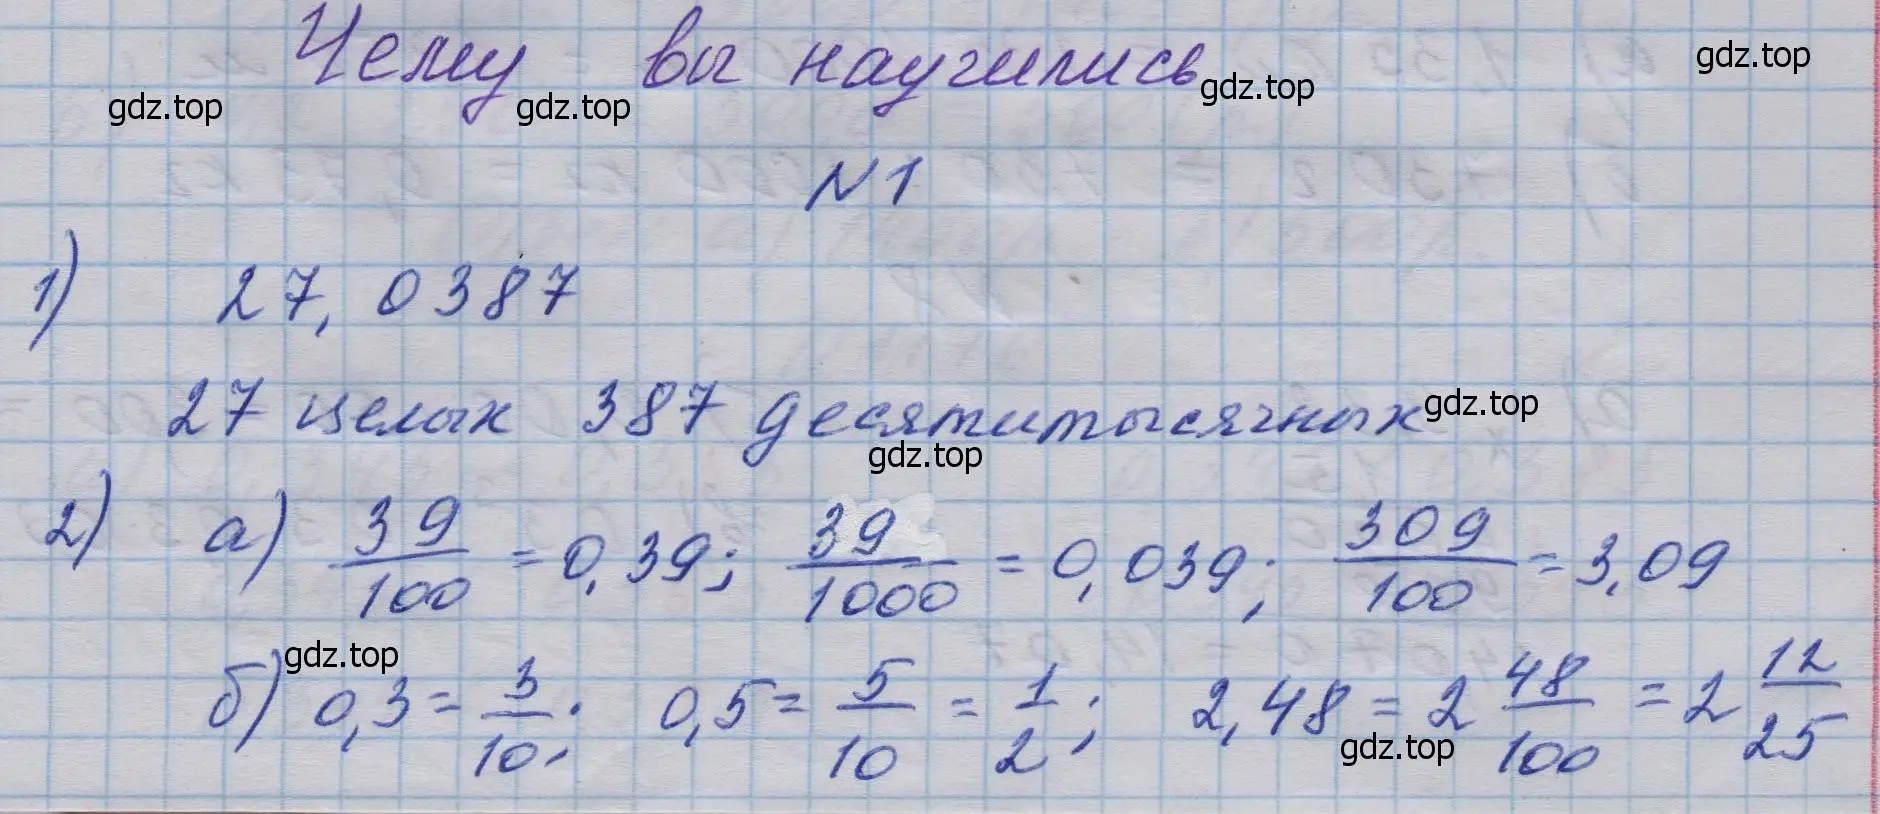 Чему вы научились
gdz.top gdz.top gdz.top gdz.top
N 1
1) 27, 0387
27 целых 387 десятитысячных
gdz.top gdz.top
2) а) 39/100 = 0,39; 39/1000 = 0,039; 309/100 = 3,09
gdz.top
б) 0,3 = 3/10; 0,5 = 5/10 = 1/2; 2,48 = 2 48/100 = 2 12/25
gdz.top